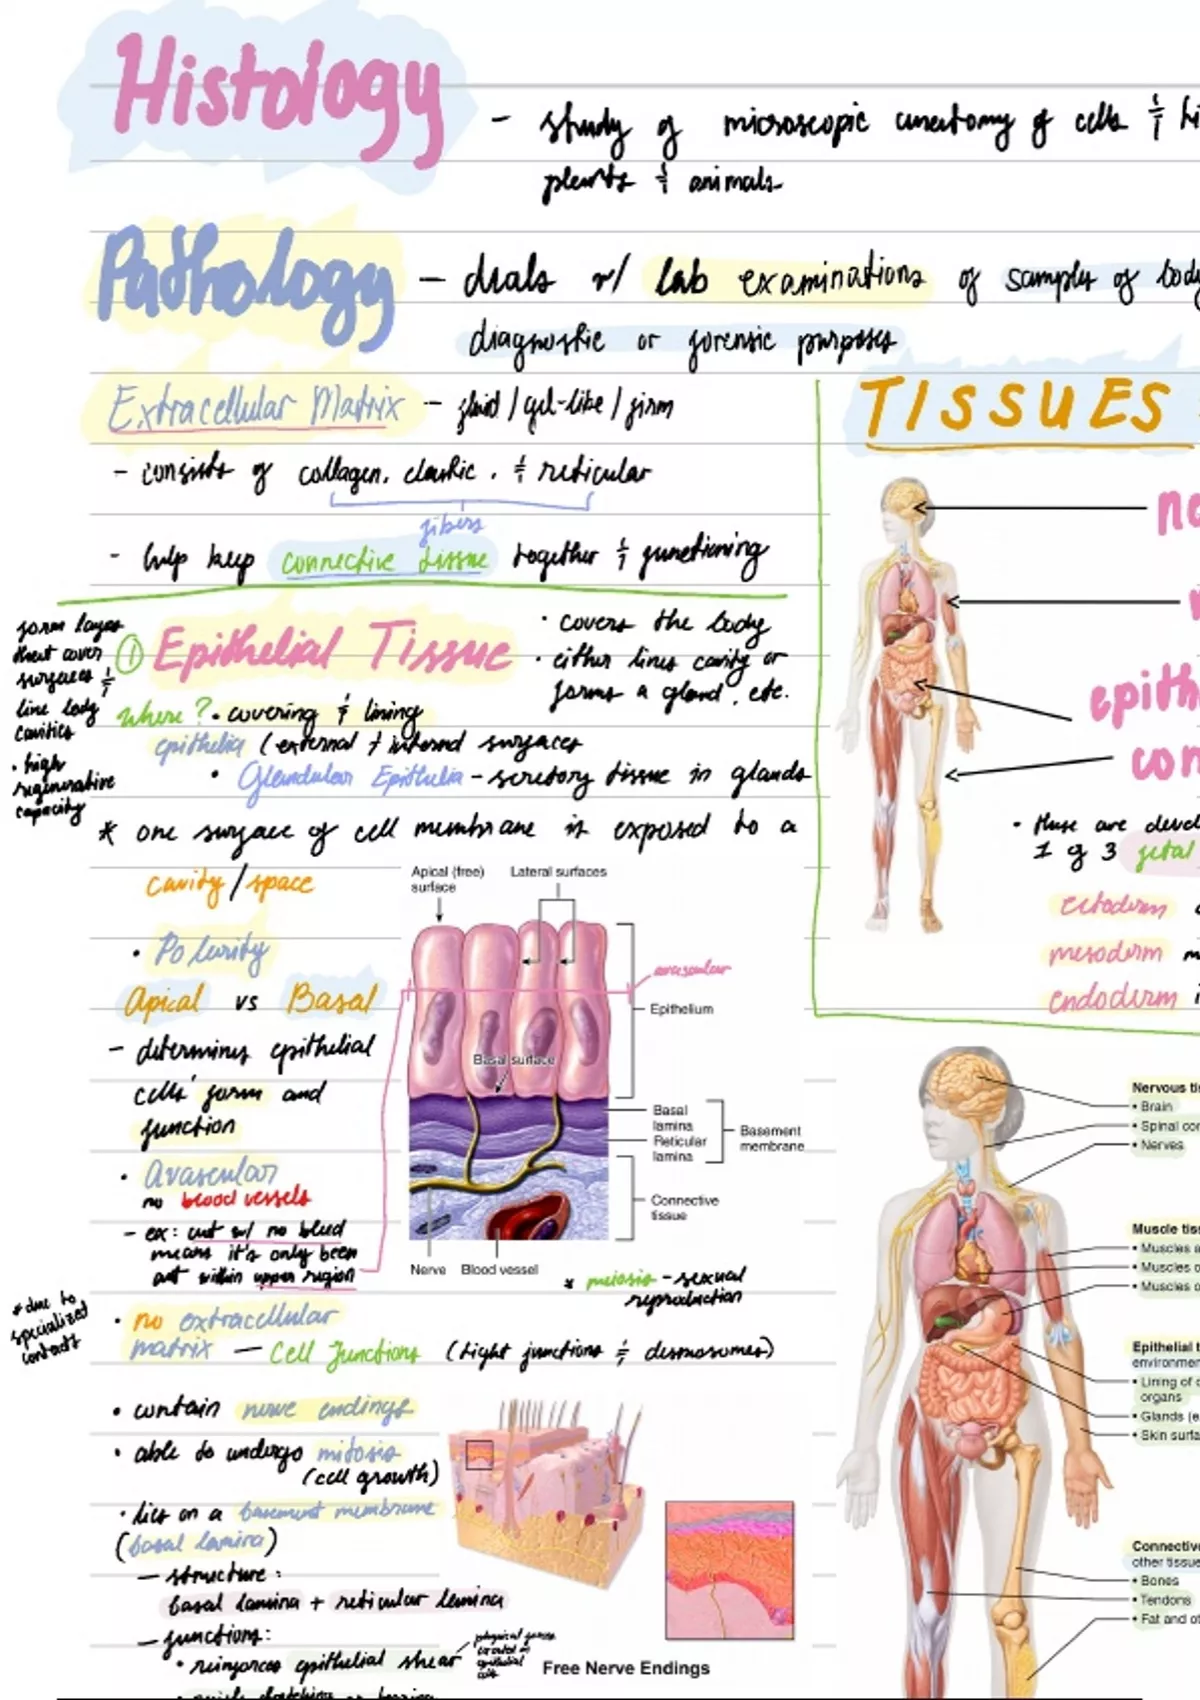 Histology
- study of microscopic anatomy of cells &
plants & animals
Pathology
- deals w/ lab examinations of samples of body
diagnostic or forensic purposes
Extracellular Matrix - fluid / gel-like / firm
- consists of collagen, elastic, & reticular
fibers
- help keep connective tissue together & functioning
form layers
that cover
surfaces &
line body
cavities
• high
regenerative
capacity
① Epithelial Tissue
• covers the body
• either lines cavity or
forms a gland, etc.
where? • covering & lining
epithelia (external + internal surfaces
• Glandular Epithelia - secretory tissue in glands
* one surface of cell membrane is exposed to a
cavity/space
• Polarity
Apical vs Basal
- determines epithelial
cells' form and
function
• Avascular
no blood vessels
- ex: cut w/ no bleed
means it's only been
cut within upper region
Apical (free)
surface
Lateral surfaces
avascular
Epithelium
Basal surface
Basal
lamina
Reticular
lamina
Basement
membrane
Connective
tissue
Nerve
Blood vessel
* meiosis - sexual
reproduction
* due to
specialized
contacts
• no extracellular
matrix - Cell Junctions (tight junctions & desmosomes)
• contain nerve endings
• able to undergo mitosis
(cell growth)
• lies on a basement membrane
(basal lamina)
- structure:
basal lamina + reticular lamina
- functions:
• reinforces epithelial shear
physical forces
created on
epithelial
cells
Free Nerve Endings
TISSUES
• these are
1 of 3 fetal
ectoderm
mesoderm
endoderm
Nervous
• Brain
• Spinal
• Nerves
Muscle
• Muscles
• Muscles
• Muscles
Epithelial
• Lining of
organs
• Glands
• Skin
Connective
other
• Bones
• Tendons
• Fat and